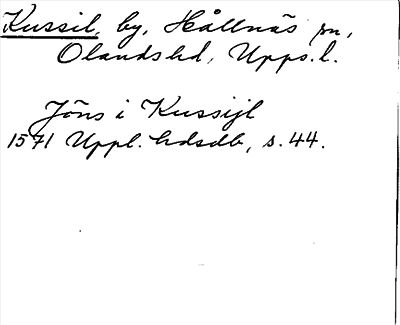 Kussil, by, Hållnäs sn,
Olands hd, Upps. l.
Jöns i Kussijl
1571 Uppl. hdsdb, s. 44.